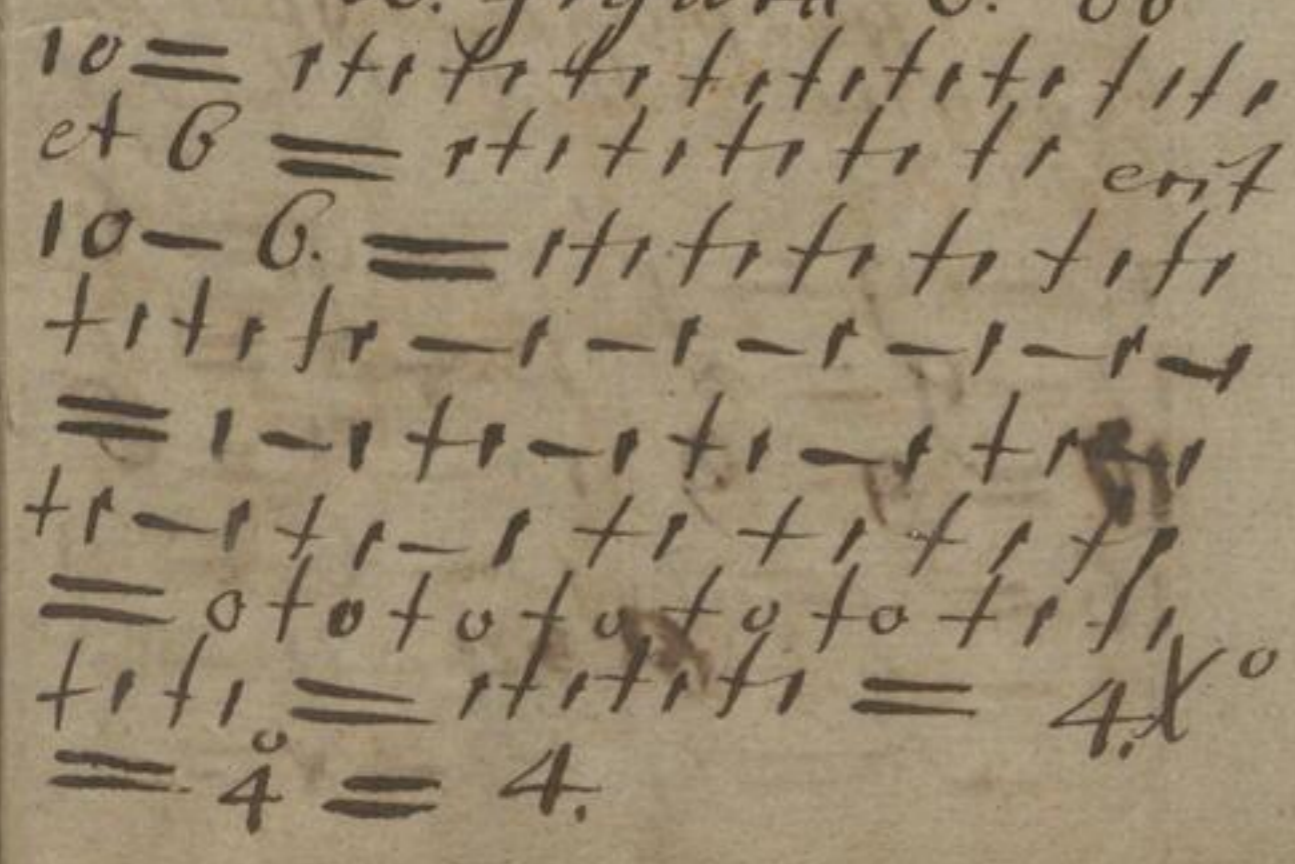 10 = 1+1+1+1+1+1+1+1+1+1
et 6 = 1+1+1+1+1+1 erit
10 — 6. = 1+1+1+1+1+1+1
+1+1+1 — 1 — 1 — 1 — 1 — 1 — 1
= 1 — 1 + 1 — 1 + 1 — 1 + 1 — 1
+1 — 1 + 1 — 1 + 1 + 1 + 1 + 1
= 0 + 0 + 0 + 0 + 0 + 0 + 1 + 1
+1+1 = 1+1+1+1 = 4.X°
= 4̊ = 4.